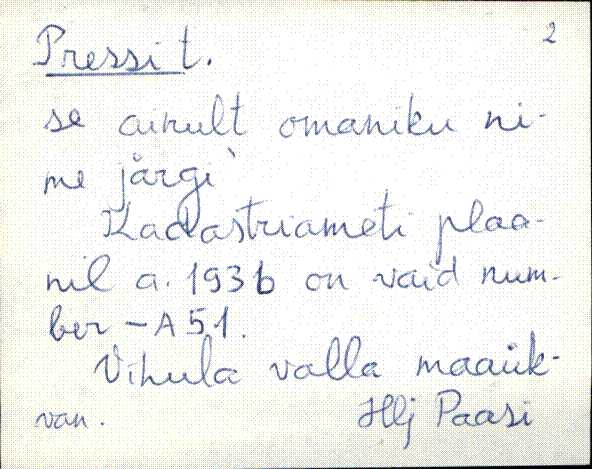 2
Pressi t.
se ainult omaniku ni-
me järgi
Kadastriameti plaa-
nil a. 1936 on vaid num-
ber - A 51.
Vihula valla maaük-
van. Hlj Paasi